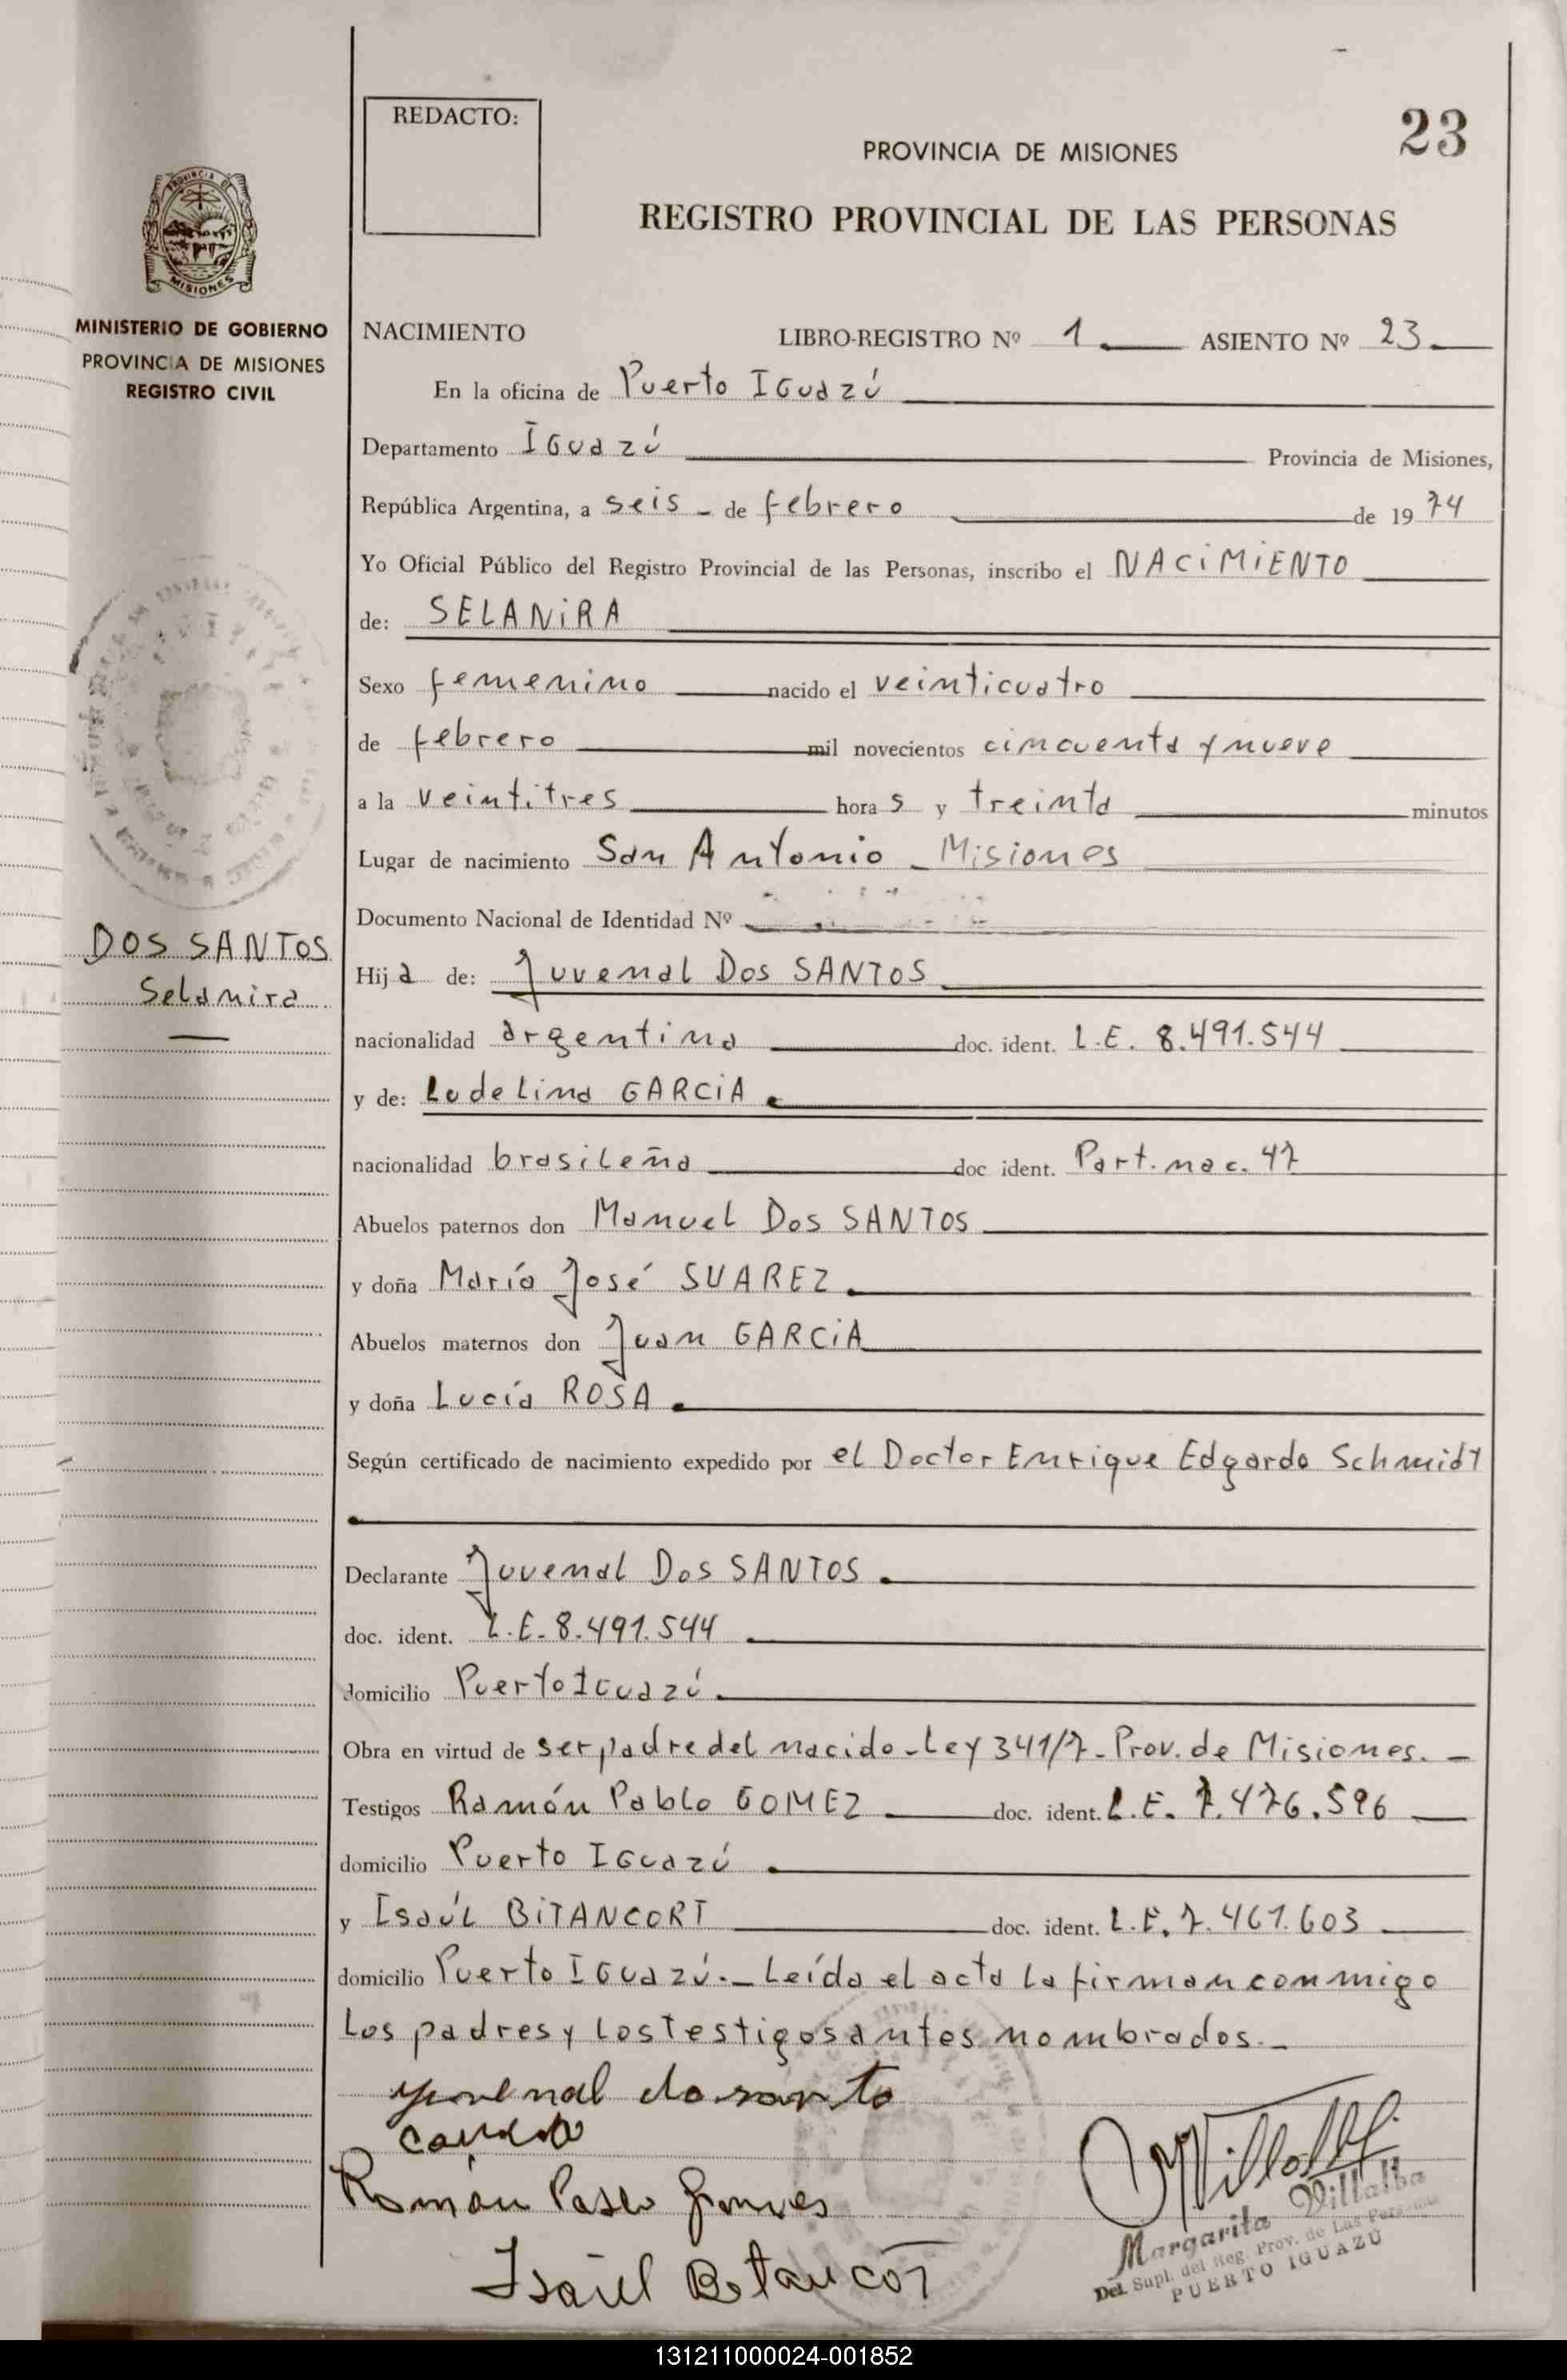 REDACTO:
23
PROVINCIA DE MISIONES
REGISTRO PROVINCIAL DE LAS PERSONAS
PROVINCIA DE
MISIONES
MINISTERIO DE GOBIERNO
PROVINCIA DE MISIONES
REGISTRO CIVIL
NACIMIENTO LIBRO-REGISTRO Nº 1 ASIENTO Nº 23
En la oficina de Puerto IGuazú
Departamento IGuazú Provincia de Misiones,
República Argentina, a seis - de febrero de 1974
Yo Oficial Público del Registro Provincial de las Personas, inscribo el NACiMiENTO
de: SELANiRA
Sexo femenino nacido el veinticuatro
de febrero mil novecientos cincuenta y nueve
a la veintitres hora s y treinta minutos
Lugar de nacimiento San Antonio - Misiones
Documento Nacional de Identidad Nº
DOS SANTOS
Selanira
Hija de: Juvenal Dos SANTOS
nacionalidad argentina doc. ident. L.E. 8.491.544
y de: Ludelina GARCiA.
nacionalidad brasileña doc ident. Part. nac. 47
Abuelos paternos don Manuel Dos SANTOS
y doña María José SUAREZ.
Abuelos maternos don Juan GARCiA
y doña Lucía ROSA.
Según certificado de nacimiento expedido por el Doctor Enrique Edgardo Schmidt
Declarante Juvenal Dos SANTOS.
doc. ident. L.E. 8.491.544
domicilio Puerto IGuazú.
Obra en virtud de ser padre del nacido - Ley 341/7 - Prov. de Misiones. -
Testigos Ramón Pablo GOMEZ doc. ident. L.E. 7.476.596
domicilio Puerto IGuazú.
y Isaúl BiTANCORT doc. ident. L.E. 7.461.603
domicilio Puerto IGuazú.- Leída el acta la firman conmigo
los padres y los testigos antes nombrados.-
Ramón Pablo
Isaúl Betancor
Margarita Villalba
Del. Supl. del Reg. Prov. de Las Personas
PUERTO IGUAZU
131211000024-001852